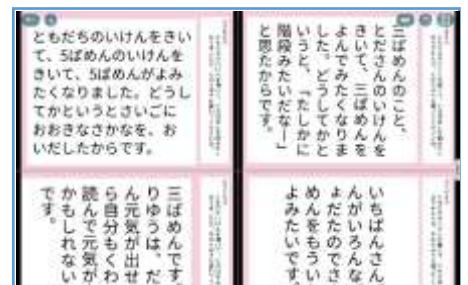 ともだちのいけんをきい
て、5ばめんのいけんを
きいて、5ばめんがよみ
たくなりました。どうし
てかというとさいごに
おおきなさかなを、お
いだしたからです。
三ばめんのこと、
とださんのいけんを
きいて、三ばめんを
よんでみたくなりま
した。どうしてかと
いうと、「たしかに
階段みたいだなー」
と思たからです。
三ばめんです。
りゆうは、だ
ん元気が出せ
ら自分もくわ
読んで元気が
かもしれない
です。
いちばんさん
んがいろんな
よだたのでさ
めんをもうい
よみたいです。